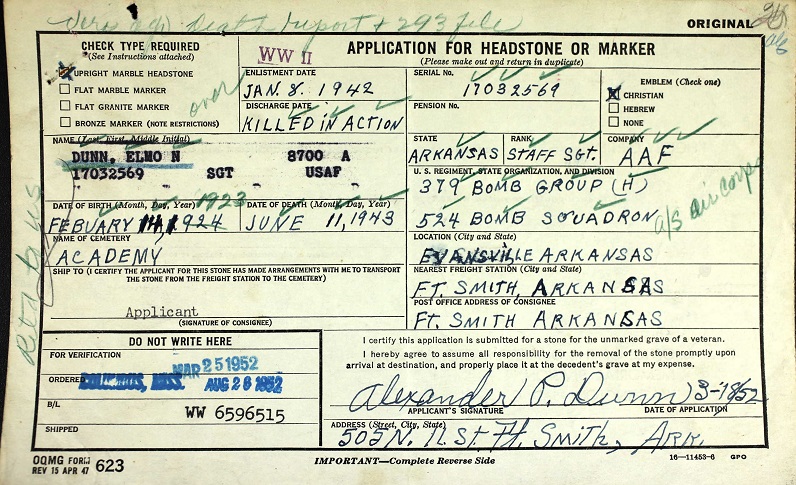 Death report + 293 file
ORIGINAL
CHECK TYPE REQUIRED
(See Instructions attached)
UPRIGHT MARBLE HEADSTONE
FLAT MARBLE MARKER
FLAT GRANITE MARKER
BRONZE MARKER (NOTE RESTRICTIONS)
over
WW II
APPLICATION FOR HEADSTONE OR MARKER
(Please make out and return in duplicate)
ENLISTMENT DATE
JAN. 8. 1942
SERIAL No.
17032569
EMBLEM (Check one)
CHRISTIAN
HEBREW
NONE
DISCHARGE DATE
KILLED IN ACTION
PENSION No.
NAME (Last, First, Middle Initial)
DUNN, ELMO N 8700 A
17032569 SGT USAF
STATE
ARKANSAS
RANK
STAFF SGT.
COMPANY
AAF
U. S. REGIMENT, STATE ORGANIZATION, AND DIVISION
379 BOMB GROUP (H)
524 BOMB SQUADRON
a/s air corps
DATE OF BIRTH (Month, Day, Year)
1923
FEBUARY 14, 1924
DATE OF DEATH (Month, Day, Year)
JUNE 11, 1943
NAME OF CEMETERY
ACADEMY
LOCATION (City and State)
EVANSVILLE ARKANSAS
SHIP TO (I CERTIFY THE APPLICANT FOR THIS STONE HAS MADE ARRANGEMENTS WITH ME TO TRANSPORT
THE STONE FROM THE FREIGHT STATION TO THE CEMETERY)
NEAREST FREIGHT STATION (City and State)
FT. SMITH, ARKANSAS
Applicant
(SIGNATURE OF CONSIGNEE)
POST OFFICE ADDRESS OF CONSIGNEE
FT. SMITH ARKANSAS
DO NOT WRITE HERE
FOR VERIFICATION
MAR 25 1952
ORDERED
COLUMBUS, MISS. AUG 28 1952
B/L
WW 6596515
SHIPPED
I certify this application is submitted for a stone for the unmarked grave of a veteran.
I hereby agree to assume all responsibility for the removal of the stone promptly upon
arrival at destination, and properly place it at the decedent's grave at my expense.
Alexander P. Dunn 3-18/52
APPLICANT'S SIGNATURE
DATE OF APPLICATION
ADDRESS (Street, City, State)
505 N. 11 St. Ft. Smith, Ark.
OQMG FORM
REV 15 APR 47
623
IMPORTANT—Complete Reverse Side
16—11453-6 GPO